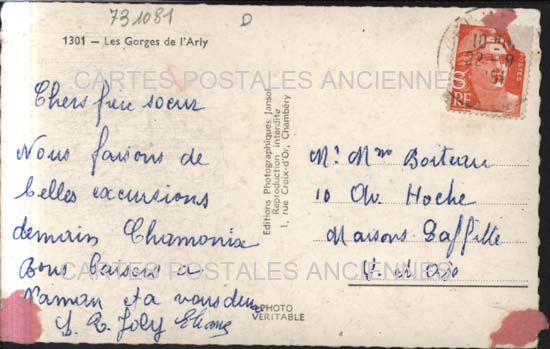 731081
D
1301 — Les Gorges de l'Arly
CARTES POSTALES ANCIENNES
Chers frère soeur
Nous faisons de
belles excursions
demain Chamonix
Bons baisers a
Maman et a vous deux
Joly Eliane
Editions Photographiques Jansol
Reproduction interdite
1, rue Croix-d'Or, Chambéry
PHOTO
VERITABLE
10
22 - 8
51
POSTES
Mr Mme Boiteau
10 Av. Hoche
Maisons Laffitte
S. et Oise
CARTES POSTALES ANCIENNES